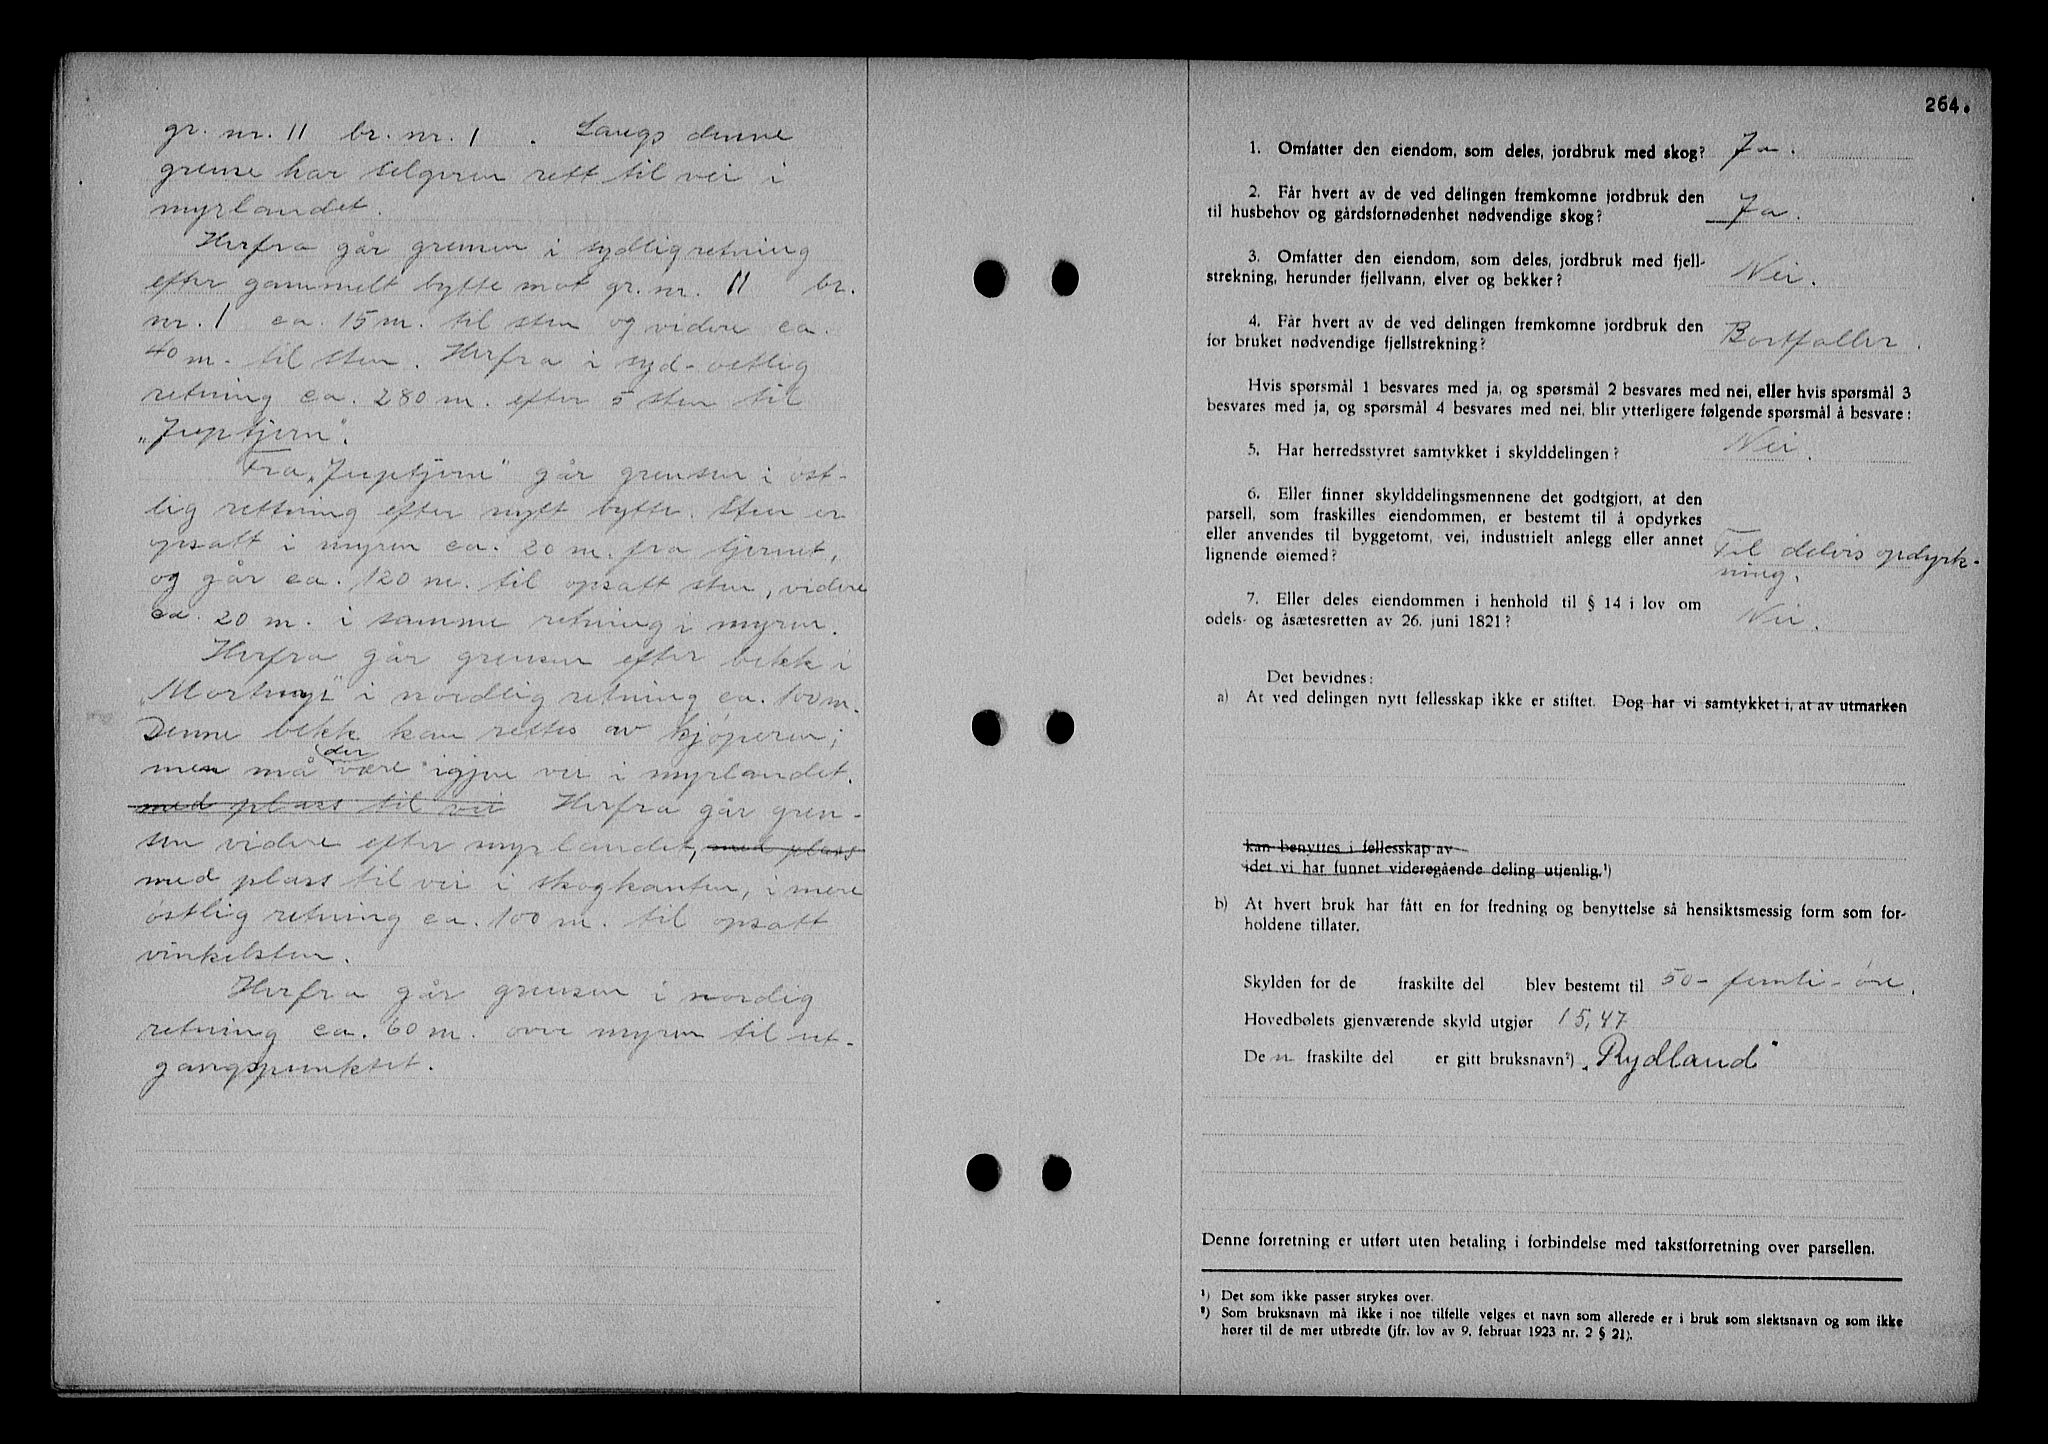 gr. nr. 11 br. nr. 1. Langs denne
grense har selgeren rett til vei i
myrlandet.
Herfra går grensen i sydlig retning
efter gammelt bytte mot gr. nr. 11 br.
nr. 1 ca. 15 m. til sten og videre ca.
40 m. til sten. Herfra i syd-vestlig
retning ca. 280 m. efter 5 sten til
„Juptjern".
Fra „Juptjern" går grensen i øst-
lig rettning efter nytt bytte. Sten er
opsatt i myren ca. 20 m. fra tjernet,
og går ca. 120 m. til opsatt sten, videre
ca. 20 m. i samme retning i myren.
Herfra går grensen efter bekk i
i nordlig retning ca. 100 m.
Denne bekk kan rettes av kjøperen;
der
men må være igjen vei i myrlandet.
med plass til vei Herfra går gren-
sen videre efter myrlandet, med plass
med plass til vei i skogkanten, i mere
østlig retning ca. 100 m. til opsatt
vinkelsten.
Herfra går grensen i nordig
retning ca. 60 m. over myren til ut-
gangspunktet.
264.
1. Omfatter den eiendom, som deles, jordbruk med skog? Ja.
2. Får hvert av de ved delingen fremkomne jordbruk den
til husbehov og gårdsfornødenhet nødvendige skog? Ja.
3. Omfatter den eiendom, som deles, jordbruk med fjell-
strekning, herunder fjellvann, elver og bekker? Nei.
4. Får hvert av de ved delingen fremkomne jordbruk den
for bruket nødvendige fjellstrekning? Bortfaller.
Hvis spørsmål 1 besvares med ja, og spørsmål 2 besvares med nei, eller hvis spørsmål 3
besvares med ja, og spørsmål 4 besvares med nei, blir ytterligere følgende spørsmål å besvare:
5. Har herredsstyret samtykket i skylddelingen? Nei.
6. Eller finner skylddelingsmennene det godtgjort, at den
parsell, som fraskilles eiendommen, er bestemt til å opdyrkes
eller anvendes til byggetomt, vei, industrielt anlegg eller annet
lignende øiemed? Til delvis opdyrk-
ning.
7. Eller deles eiendommen i henhold til § 14 i lov om
odels- og åsætesretten av 26. juni 1821? Nei.
Det bevidnes:
a) At ved delingen nytt fellesskap ikke er stiftet. Dog har vi samtykket i, at av utmarken
kan benyttes i fellesskap av
idet vi har funnet videregående deling utjenlig.¹)
b) At hvert bruk har fått en for fredning og benyttelse så hensiktsmessig form som for-
holdene tillater.
Skylden for de fraskilte del blev bestemt til 50 - femti - øre.
Hovedbølets gjenværende skyld utgjør 15,47
Den fraskilte del er gitt bruksnavn²) „Rydland"
Denne forretning er utført uten betaling i forbindelse med takstforretning over parsellen.
¹) Det som ikke passer strykes over.
²) Som bruksnavn må ikke i noe tilfelle velges et navn som allerede er i bruk som slektsnavn og som ikke
hører til de mer utbredte (jfr. lov av 9. februar 1923 nr. 2 § 21).